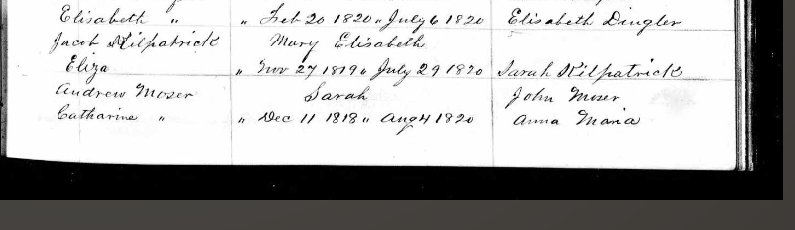 Elisabeth " " Feb 20 1820 " July 6 1820 Elisabeth Dingler
Jacob Kilpatrick Mary Elisabeth
Eliza " Nov 27 1819 " July 29 1820 Sarah Kilpatrick
Andrew Moser Sarah John Moser
Catharine " " Dec 11 1818 " Aug 4 1820 Anna Maria